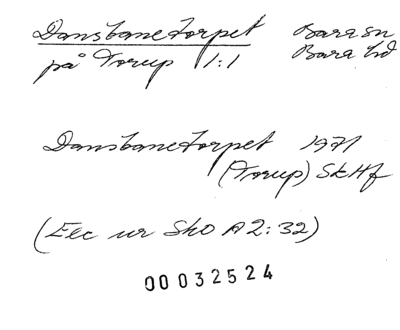 Dansbanetorpet Bara sn
på Torup 1:1 Bara hd
Dansbanetorpet 1971
(Torup) SkHf
(Exc ur ShO A2:32)
00032524